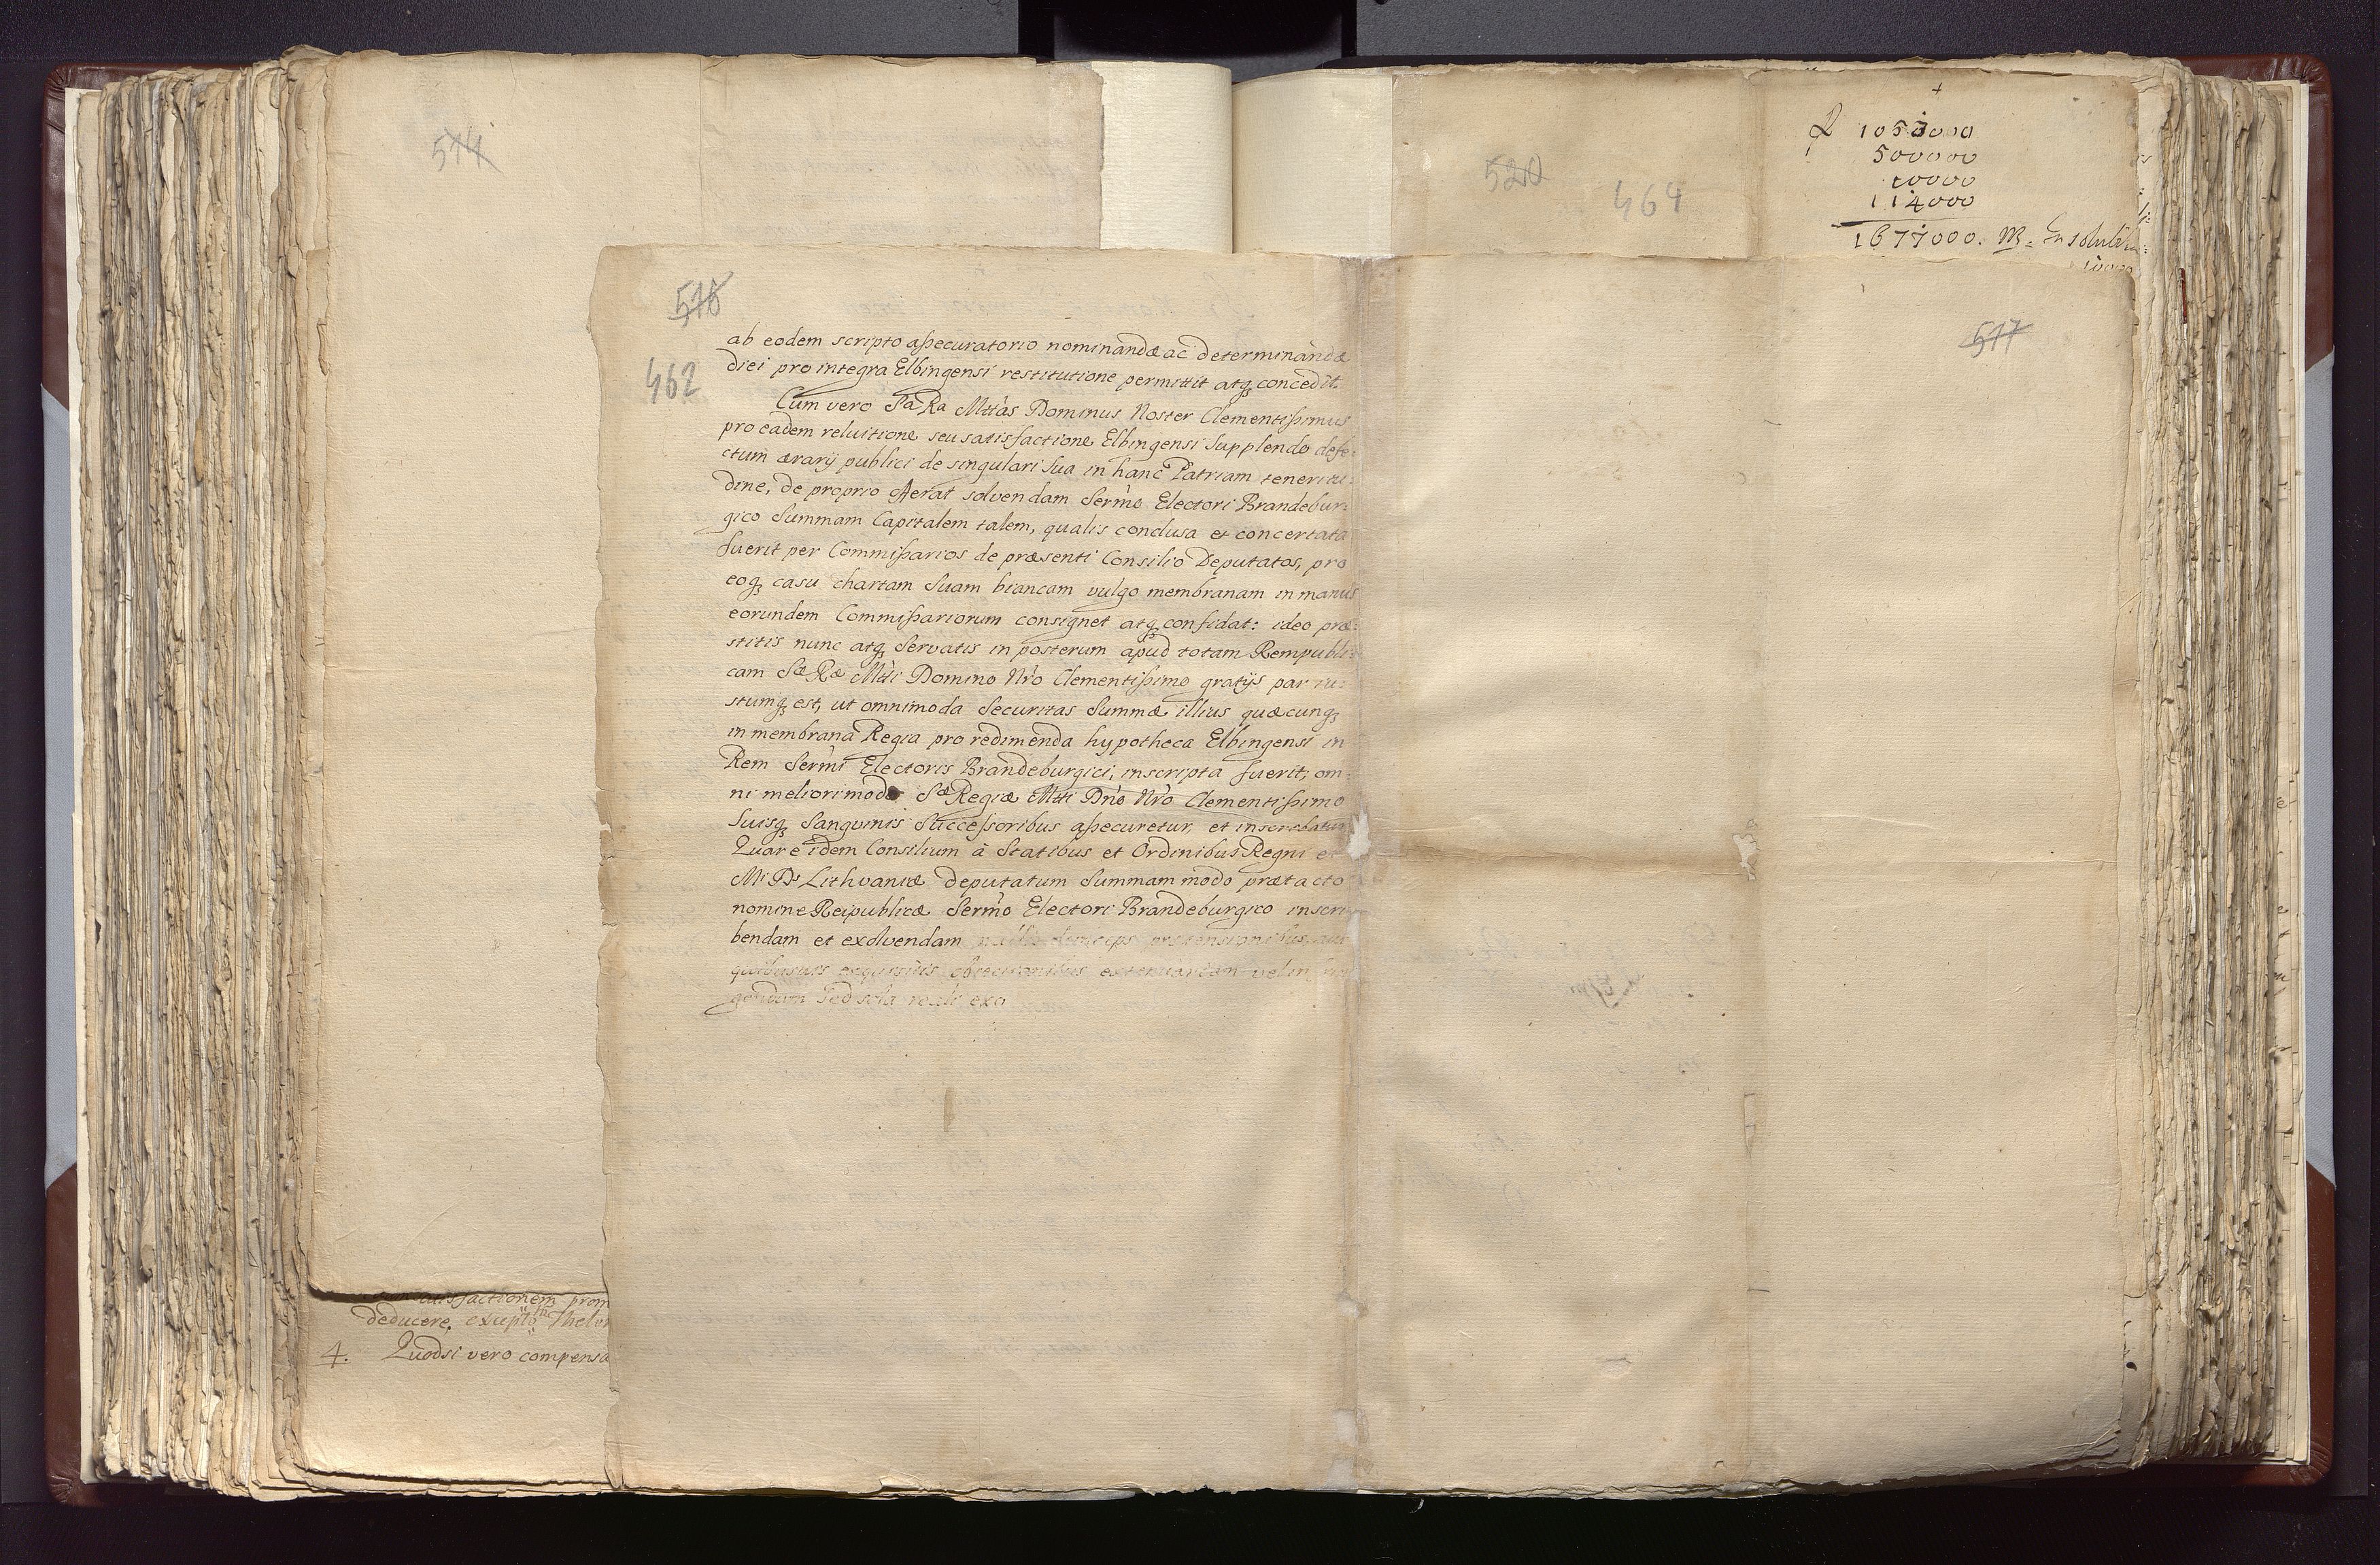 514
520
464
+
1053000
500000
10000
114000
1677000.
516
462
517
ab eodem scripto assecuratorio nominandæ ac determinandæ
diei pro integra Elbingensi restitutione permittit atq concedit.
Cum vero Sa Ra Mttas Dominus Noster Clementissimus
pro eadem reluitione seu satisfactione Elbingensi Supplendo defe:
ctum ærarij publici de singulari sua in hanc Patriam teneritu:
dine, de proprio offerat solvendam Sermo Electori Brandebur:
gico Summam Capitalem talem, qualis conclusa et concertata
fuerit per Commissarios de præsenti Consilio Deputatos, pro
eoq casu chartam suam biancam vulgo membranam in manus
eorundem Commissariorum consignet atq confidat: ideo præ:
stitis nunc atq Servatis in posterum apud totam Rempubli:
cam Sæ Ræ Mtti Domino Nro Clementissimo gratijs par iu:
stumq est, ut omnimoda Securitas Summæ illius quæcunq
in membrana Regia pro redimenda hypotheca Elbingensi in
Rem Sermi Electoris Brandeburgici, inscripta fuerit, om:
ni meliori modo Sæ Regiæ Mtti Dno Nro Clementissimo
Suisq Sangvinis Successoribus assecuretur, et inscribatur
Quare idem Consilium à Statibus et Ordinibus Regni et
M. D. Lithvaniæ deputatum Summam modo prætacto
nomine Reipublicæ Sermo Electori Brandeburgico inscri
bendam et exolvendam nullis deinceps prætensionibus, aut
quibusvis exquisitis objectionibus extenuandam vel
sed sola reali exo
satisfactionem prom
deducere,
4. Quodsi vero compensa